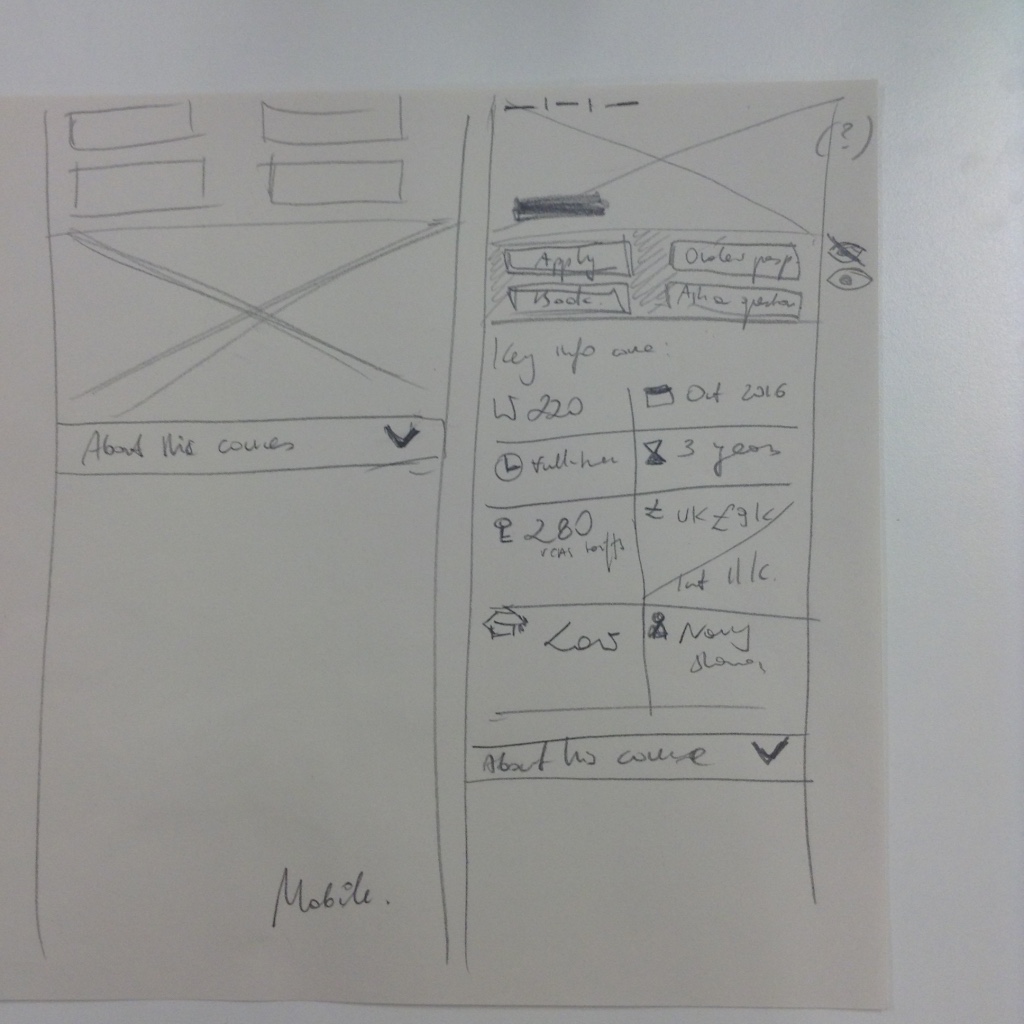 About this courses
Mobile.
(?)
Apply
Order prosp
Book
Ask a question
Key info area:
W220
Oct 2016
Full-time
3 years
£ 280
UCAS tariffs
£ UK £9k
Int 11k.
Law
About this course